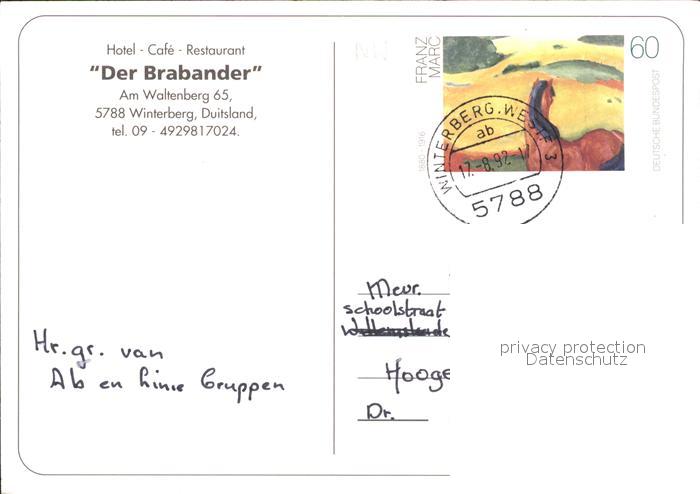 Hotel - Café - Restaurant
"Der Brabander"
Am Waltenberg 65,
5788 Winterberg, Duitsland,
tel. 09 - 4929817024.
FRANZ
MARC
1880 - 1916
60
DEUTSCHE BUNDESPOST
WINTERBERG, WESTF 3
ab
17.-8.92.-17
5788
Hr. gr. van
Ab en hinie Gruppen
Mevr.
schoolstraat
Hooge
Dr.
privacy protection
Datenschutz